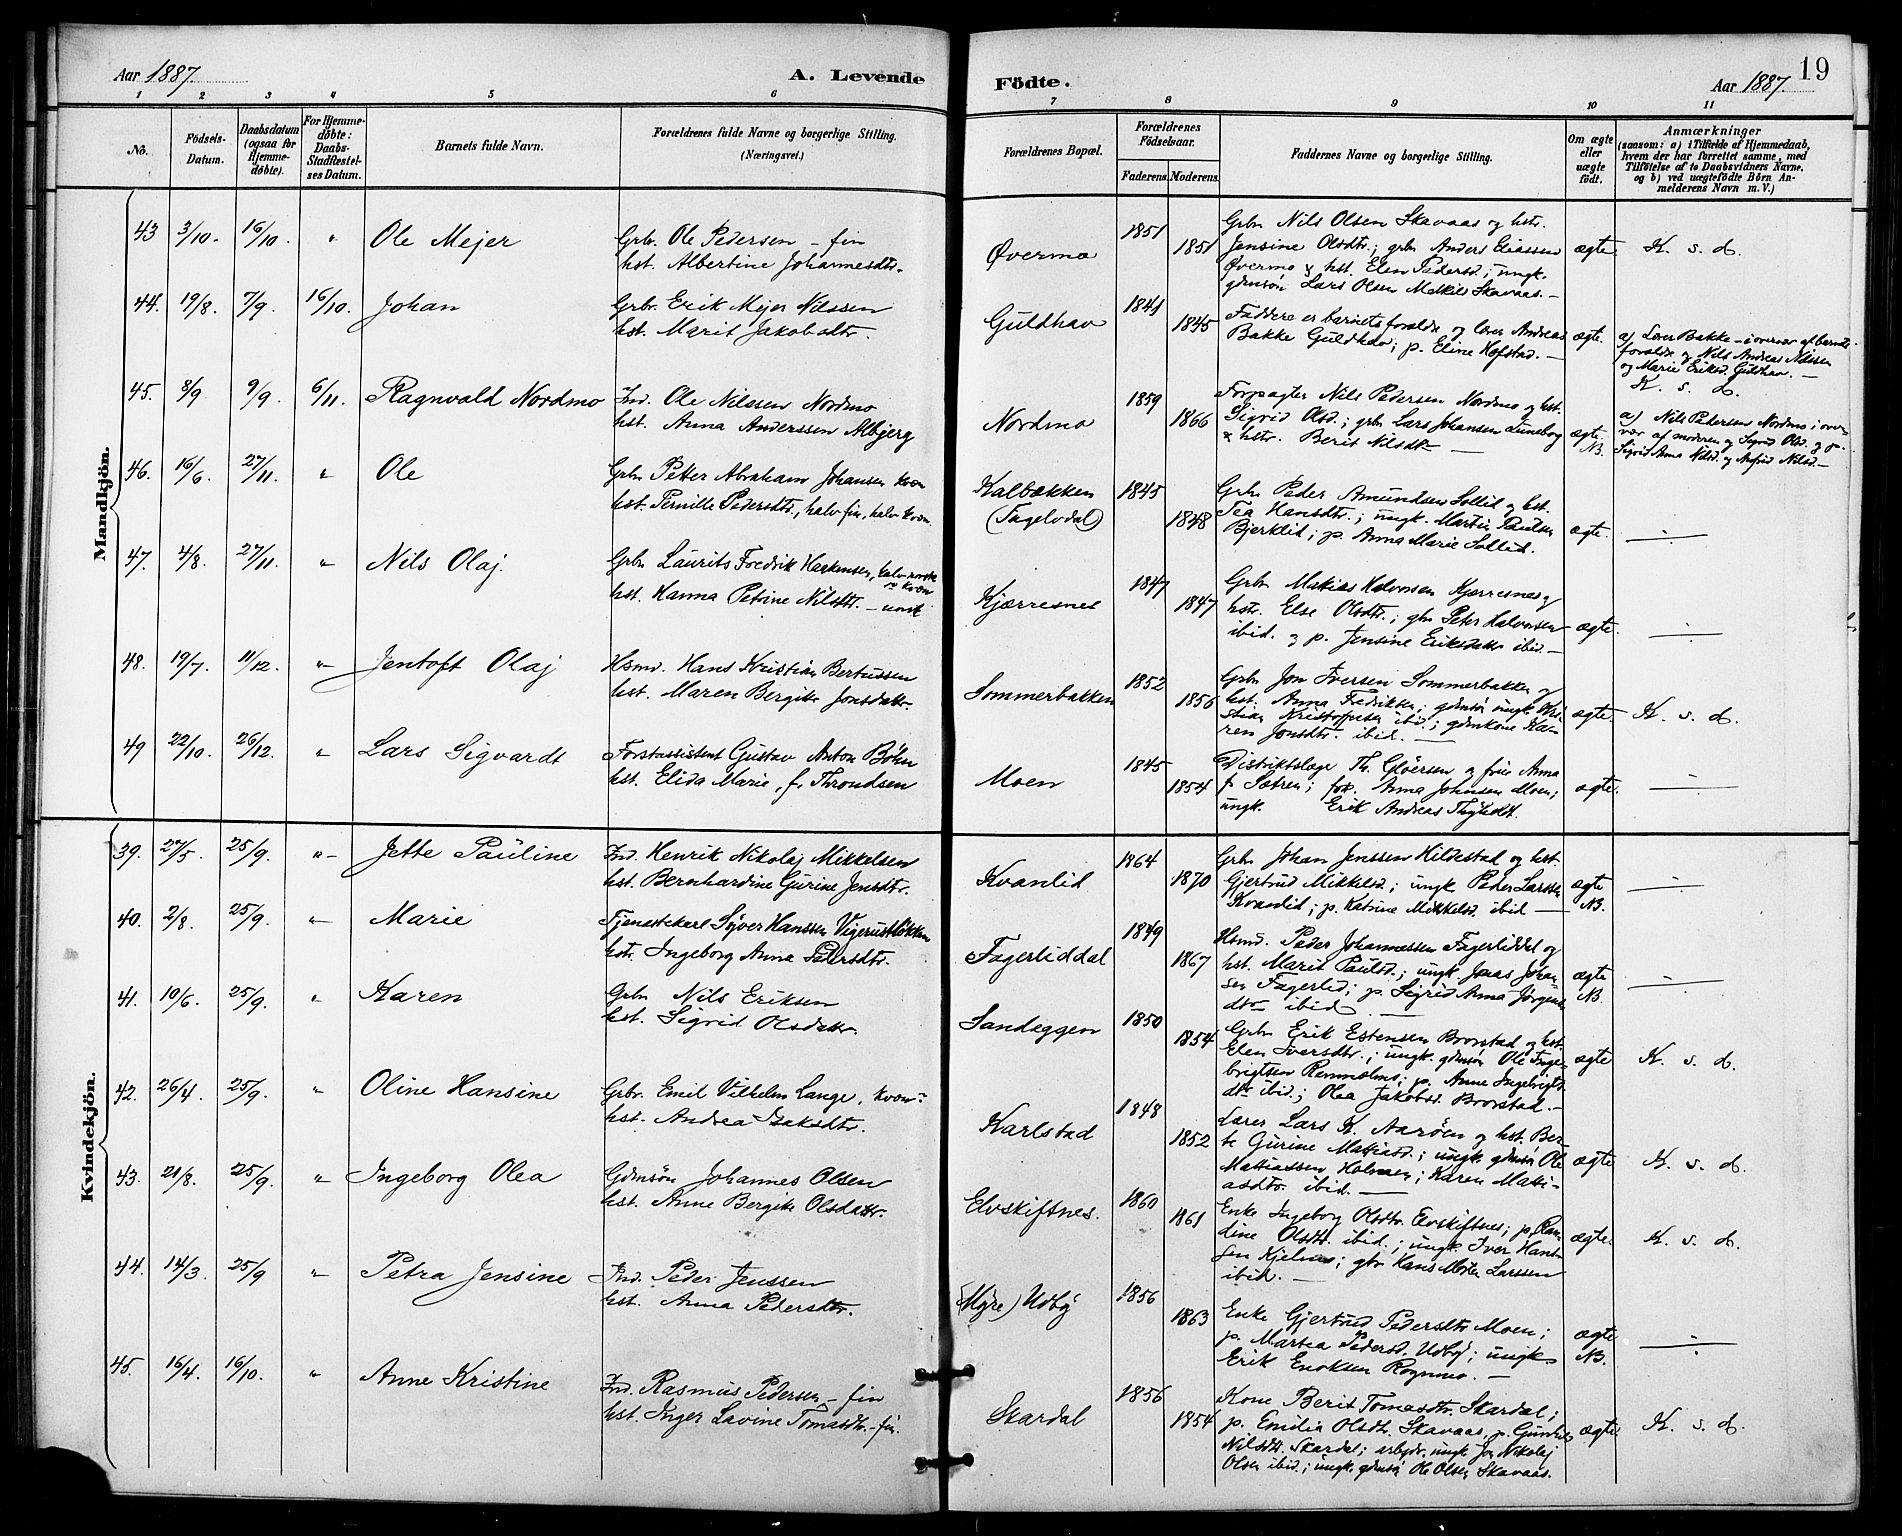 Aar 1887.
A. Levende Födte.
Aar 1887.
19
1 2 3 4 5 6 7 8 9 10 11
No.
Födsels-Datum.
Daabsdatum (ogsaa for Hjemme-döbte).
For Hjemme-döbte: Daabs-Stadfæstel-ses Datum.
Barnets fulde Navn.
Forældrenes fulde Navne og borgerlige Stilling. (Næringsvei.)
Forældrenes Bopæl.
Forældrenes Födselsaar.
Faderens. Moderens.
Faddernes Navne og borgerlige Stilling.
Om ægte eller uægte födt.
Anmærkninger
(saasom: a) i Tilfælde af Hjemmedaab,
hvem der har forrettet samme, med
Tilföielse af to Daabsvidners Navne,
og b) ved uægtefödte Börn An-
melderens Navn m. V.)
Mandkjön.
43 3/10. 16/10. " Ole Mejer
Grbr. Ole Pedersen - fin
hst. Albertine Johannesdtr.
Øvermo 1851 1851
Grbr Nils Olsen Skavaas og hst.
Jensine Olsdtr.; grbr Anders Eliassen
Øvermo & hst. Elen Pedersd.; ungk.
gdmsøn Lars Olsen Skavaas. -
ægte. K. s. d.
44. 19/8. 7/9. 16/10. Johan
Grbr. Erik Mejer Nilssen
hst. Marit Jakobsdtr.
Guldhav 1841 1845
Faddere er barnets foraldre og lærer Andreas
Bakke Guldhav; p. Eline Hofstad. -
ægte.
a) Lærer Bakke - i overvær af barnets
foraldre og Nils Andreas Nilssen
og Marie Eriksd. Guldhav. -
K. s. d.
45. 8/9 9/9. 6/11. Ragnvald Nordmo
Ind. Ole Nilssen Nordmo
hst. Anna Anderssen Albjerg
Nordmo 1859 1866
Forpagter Nils Pedersen Nordmo og hst.
Sigrid Olsd.; grbr Lars Johansen Luneborg
& hstr. Berit Nilsdtr -
ægte. NB.
a) Nils Pedersen Nordmo i over-
vær af moderen og Sigrid Olsd. og p.
Sigrid Anna Nilsd. og Nilsd. -
46. 16/6. 27/11. " Ole
Grbr Petter Abraham Johansen kvæn
hst. Pernille Pedersdtr., halv fin, halv kvæn.
Kalbækken
(Tagelvdal) 1845 1848
Grbr Peder Amundsen Sollid og hst.
Tea Hansdtr.; ungk. Martin Paulsen
Bjerklid; p. Anna Marie Sollid.
ægte.
47. 4/8. 27/11. " Nils Olaj.
Grbr Laurits Fredrik Haakensen, halv norsk
" kvæn
hst. Hanna Petrine Nilsdtr. - norsk
Kjærresnes 1847 1847
Grbr Matias Halvorsen Kjærresnes og
hstr. Else Olsdtr.; gbr Peter Halvorsen
ibid. og p. Jensine Eriksdatr ibid. -
ægte.
48. 19/7. 11/12. " Jentoft Olaj
Hsmd. Hans Kristian Bertussen
hst. Maren Bergitte Jonsdatr.
Sommerbakken 1852 1856
Grbr Jon Iversen Sommerbakken og
hst. Anna Fredriksen; gdmsøn ungk. Kri-
stian Kristoffersen ibid.; gdmkone Ka-
ren Jonsdtr. ibid. -
ægte. K. s. d.
49 22/10. 26/12. " Lars Sigvardt
Forstassistent Gustav Anton Bøhn
hst. Elida Marie, f. Throndsen
Moen 1845 1854
Distriktslæge Th. Gløersen og frue Anna
f. Sætren; frk. Anna Johnsen Moen;
ungk. Erik Andreas
ægte.
Kvindekjön.
39. 27/5. 25/9. " Jette Pauline
Ind. Henrik Nikolaj Mikkelsen
hst. Bernhardine Gurine Jensdtr.
Kvanlid 1864 1870
Grbr Johan Jenssen Hildestad og hst.
Gjertrud Mikkelsd.; ungk Peder Larssen
Kvanlid; p. Katrine Mikkelsd. ibid -
ægte NB.
40. 2/8. 25/9. " Marie
Tjenestekarl Syver Hanssen Vigerustbakken
hstr. Ingeborg Anna Pedersdtr.
Fagerliddal 1849 1867
Hsmd. Peder Johannessen Fagerliddal og
hst. Marit Paulsd.; ungk. Jonas Johan-
sen Fagerlid; p. Sigrid Anna Jørgens
dtr ibid -
ægte NB.
41. 10/6. 25/9. " Karen
Grbr Nils Eriksen
hst. Sigrid Olsdatr.
Sandeggen 1850 1854
Grbr Erik Estensen Brorstad og hst.
Elen Iversdtr.; ungk. gdmsøn Ole Inge-
brigtsen Remmelmo; p. Anne Ingebrigts
dtr ibid.; Olea Jakobsd. Brorstad. -
ægte K. s. d.
42. 26/4. 25/9. " Oline Hansine
Grbr. Emil Vilhelm Lange, kvæn.
hst. Andrea Isaksdtr.
Karlstad 1848 1852
Lærer Lars K. Aarøen og hst. Ber-
te Gurine Matiasd.; ungk. gdmsøn Ole
Mattiassen Holmen; Karen Mati-
asdtr. ibid. -
ægte K. s. d.
43. 21/8. 25/9. " Ingeborg Olea
Gdmsøn Johannes Olsen
hst. Anne Bergitte Olsdatr.
Elvskiftnes. 1860 1861
Enke Ingeborg Olsdtr. Elvskiftnes; p. Ran-
dine Olsdtr. ibid.; ungk. Iver Hans-
sen Kjelnes; gbr Hans Morten Larssen
ibid. -
ægte. K. s. d.
44. 14/3. 25/9 " Petra Jensine
Ind. Peder Jenssen
hst. Anna Pedersdtr.
(Myre) Udby 1856 1863
Enke Gjertrud Pedersdtr Moen;
p. Martea Pedersd. Udby; ungk
Erik Enoksen Rognmo. -
ægte NB.
45. 16/4. 16/10. " Anne Kristine
Ind. Rasmus Pedersen - fin
hst. Inger Lavine Tomasdtr. - fin.
Skardal 1856 1854
Kone Berit Tomasdtr. Skardal;
p. Emilia Olsdtr. Skavaas, p. Gunhild
Nilsdtr. Skardal; arbejdr. ungk Jon Nikolaj
Olsen ibid.; ungk. gdmsøn Ole Olsen Skavaas.
ægte. K. s. d.